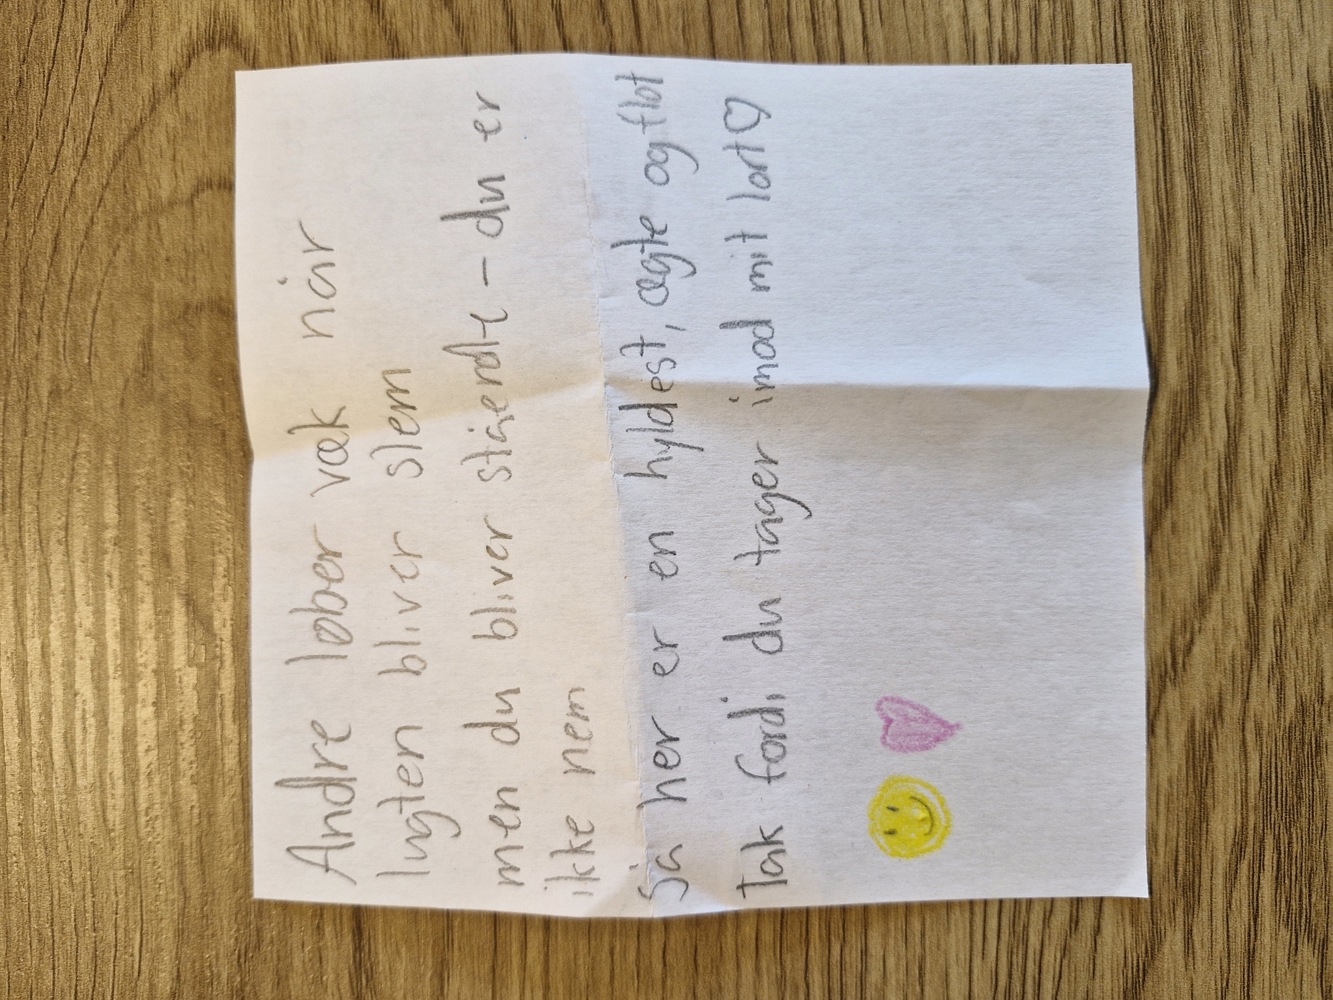 Andre løber væk når
lugten bliver slem
men du bliver stående – du er
ikke nem
så her er en hyldest, ægte og flot
Tak fordi du tager imod mit lort ♡